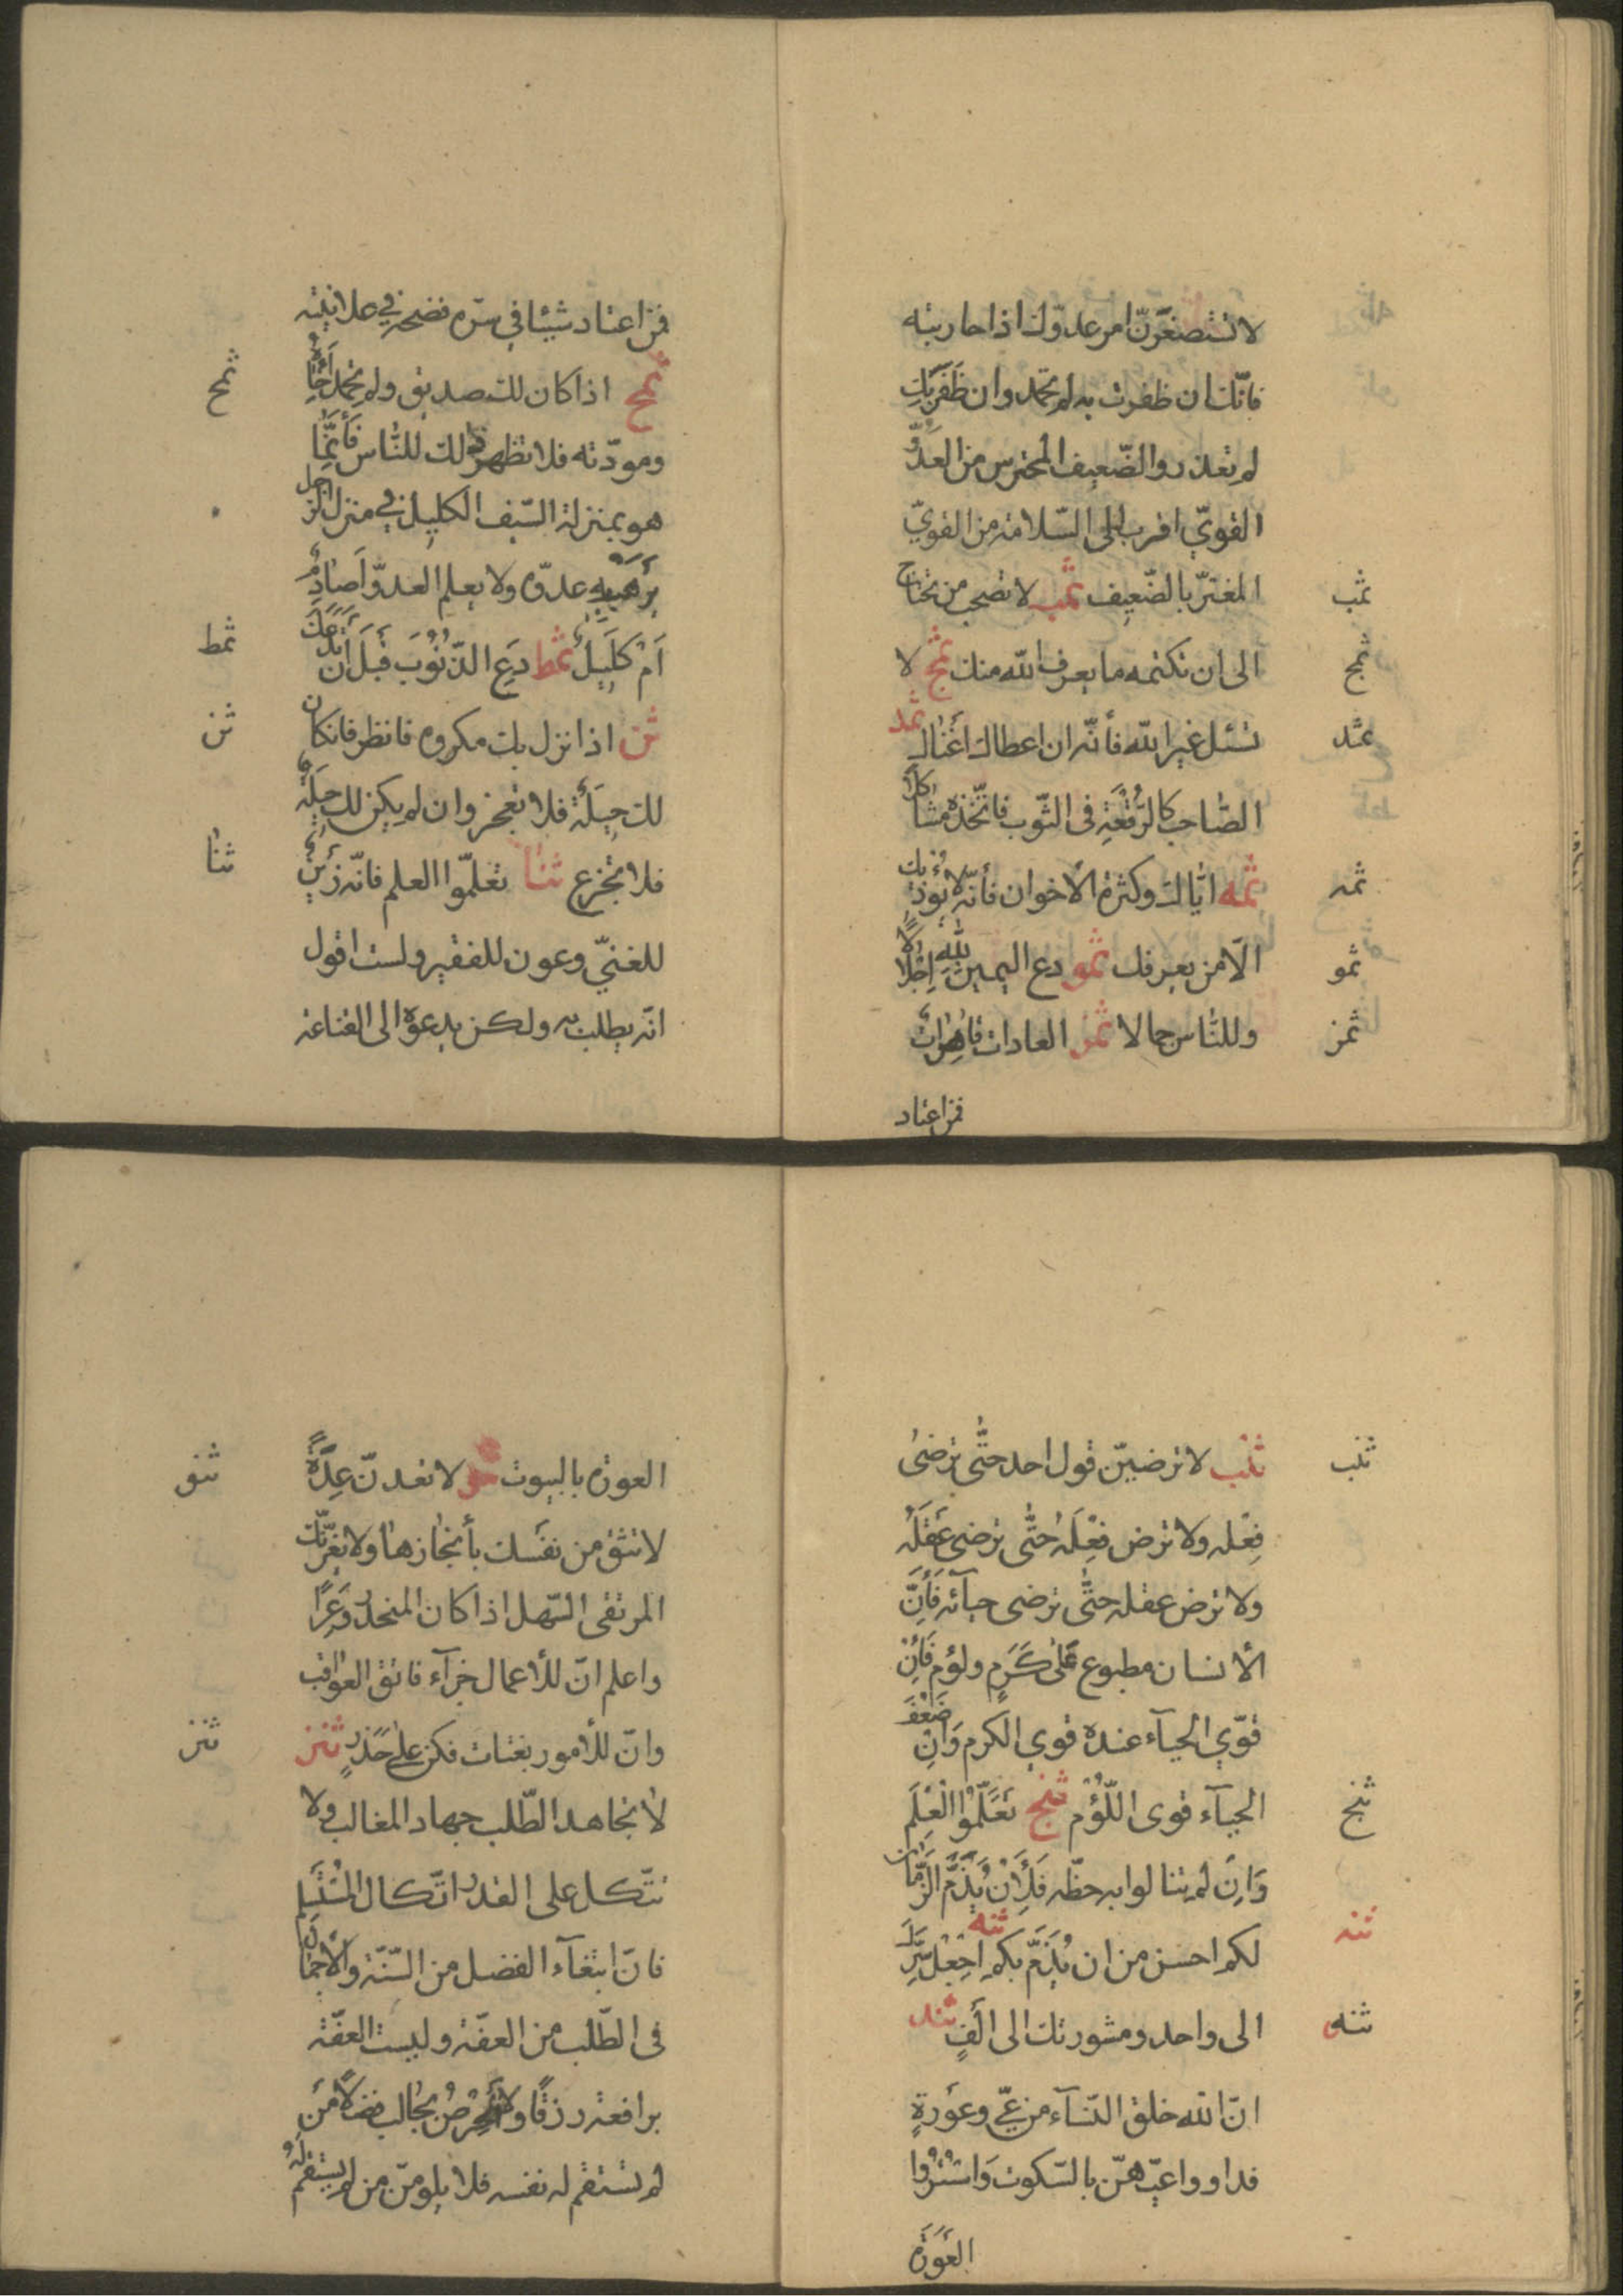 لا تستصغرنّ امر عدوّك اذا حاربته
فانّك ان ظفرت به لم تحمد وان ظَفَرَ بِكَ
لم تعذر والضّعيف المحترس من العَدُوِّ
القويّ اقرب الى السّلامة من القويّ
المغترّ بالضّعيف ثمب لا تصحب من تحتاج
ثمب
الى ان تكتمه ما يعرف الله منك ثمج لا
ثمج
تسئل غير الله فأنّه ان اعطاك اغناك ثمد
ثمد
الصّاحب كالرُّقْعَةِ فى الثّوب فاتّخذه مشاكلا
ثمه ايّاك وكثرة الأخوان فأنّه لا يُؤذيك
ثمه
الّا من يعرفك ثمو دع اليمين للّهِ اِجْلالًا
ثمو
وللنّاس جمالا ثمز العادات قاهرات
ثمز
فمن اعتاد
فمن اعتاد شيئا في سرّه فضحه في علانيته
ثمح اذا كان لك صديق ولم تحمد اِخَاءَهُ
ثمح
ومودّته فلا تظهر ذلك للنّاس فَأنَّمَا
هو بمنزلة السّيف الكليل في منزل الرّجل
يَرْهَبُهُ عدوّه ولا يعلم العدوّ اَصارِمٌ
اَمْ كَلِيلٌ ثمط دَعِ الذُّنُوبَ قَبْلَ اَنْ تَدَعَكَ
ثمط
ثن اذا نزل بك مكروه فانظر فان كان
ثن
لك حِيلَةٌ فلا تعجز وان لم يكن لك حِيلَةٌ
فلا تجزع ثنا تعلّموا العلم فانّه زَيْنٌ
ثنا
للغنيّ وعون للفقير ولست اقول
انّه يطلب به ولكن يدعوه الى القناعة
ثنب لا ترضينّ قول احد حتّى ترضى
ثنب
فِعْله ولا ترض فِعْلَهُ حتّى ترضى عَقْلَهُ
ولا ترض عقله حتّى ترضى حيآئه فَأنَّ
الأنسان مطبوع عَلى كَرَمٍ ولؤم فَاِنْ
قوّي الحيآء عنده قوي الكرم وَاِنْ ضَعُفَ
الحيآء قوى اللُّؤْمُ ثنج تَعَلَّمُوا الْعِلْمَ
ثنج
وَاِنْ لم تنالوا به حظّه فَلَأَنْ يُذَمَّ الزَّمَانُ
لكم احسن من ان يُذَمَّ بِكم ثنه اجْعَلْ سِرَّكَ
ثنه
الى واحد ومشورتك الى اَلْفٍ ثند
ثنه
انّ الله خلق النّسآء من عيّ وعَورَةٍ
فداووا عيّهنّ بالسّكوت وَاسْتُرُوا
العَورَة
العورة بالبيوت ثنو لا تعدنّ عِدَةً
ثنو
لا تثق من نفسك بأنجازها ولا يغرّنّك
المرتقى السّهل اذا كان المنحدرُ وَعْرًا
واعلم انّ للأعمال جزآء فاتّق العواقب
وانّ للأمور بغتات فكن على حَذَرٍ ثنز
ثنز
لا تجاهد الطّلب جهاد المغالب ولا
تتّكل على القدر اتّكال المُسْتَسْلِم
فانّ ابتغآء الفضل من السّنّة والأجْمَال
فى الطّلب من العفّة وليست العفّة
برافعة رزقًا ولا الحِرْصُ بجالب فضلًا مَن
لم تستقم له نفسه فلا يلومنّ من لم يستقم له